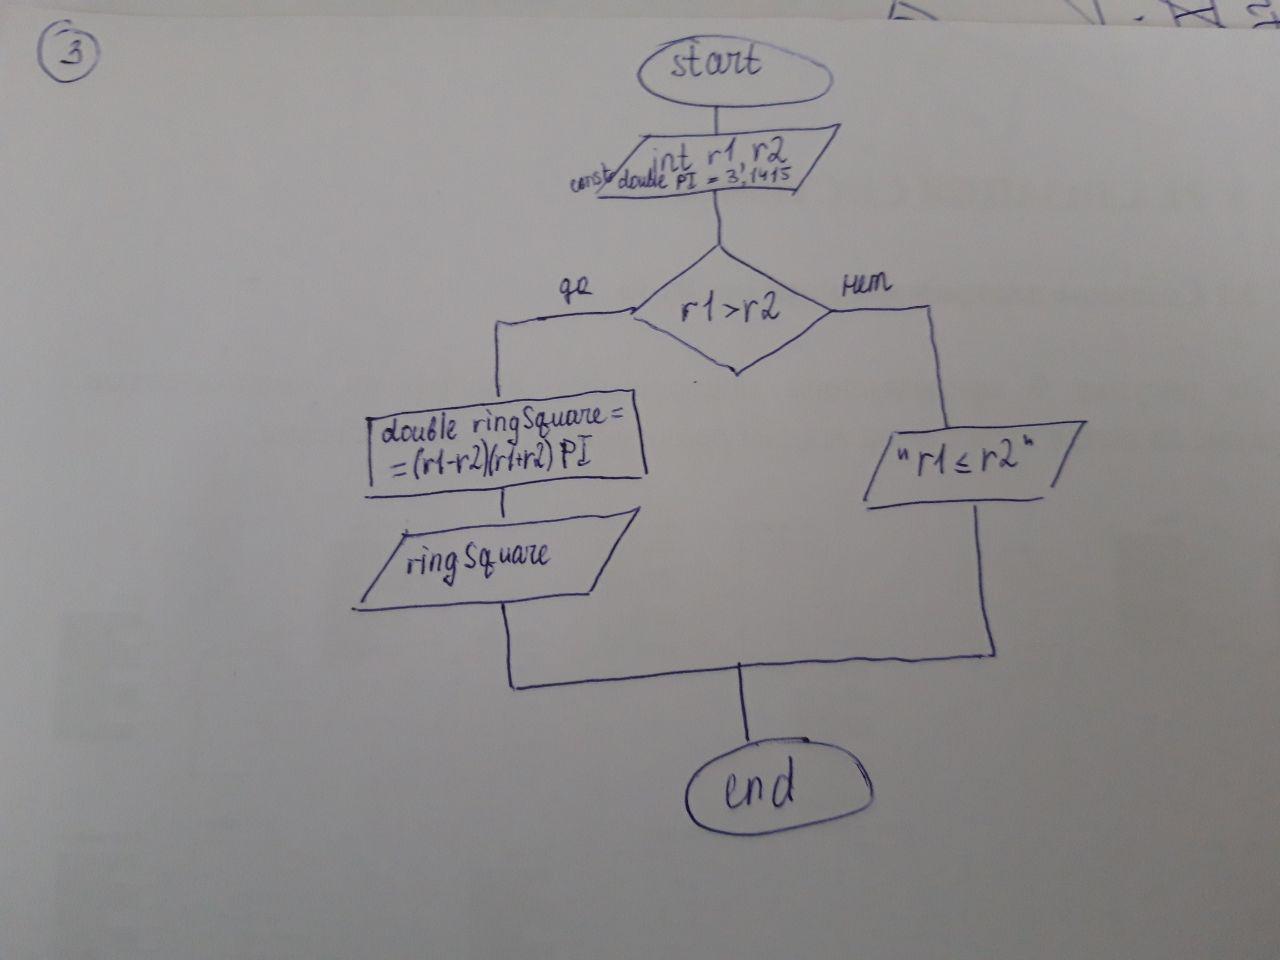 3
start
int r1, r2
const double PI = 3,1415
r1>r2
да
нет
double ringSquare =
= (r1-r2)(r1+r2) PI
"r1 ≤ r2"
ringSquare
end